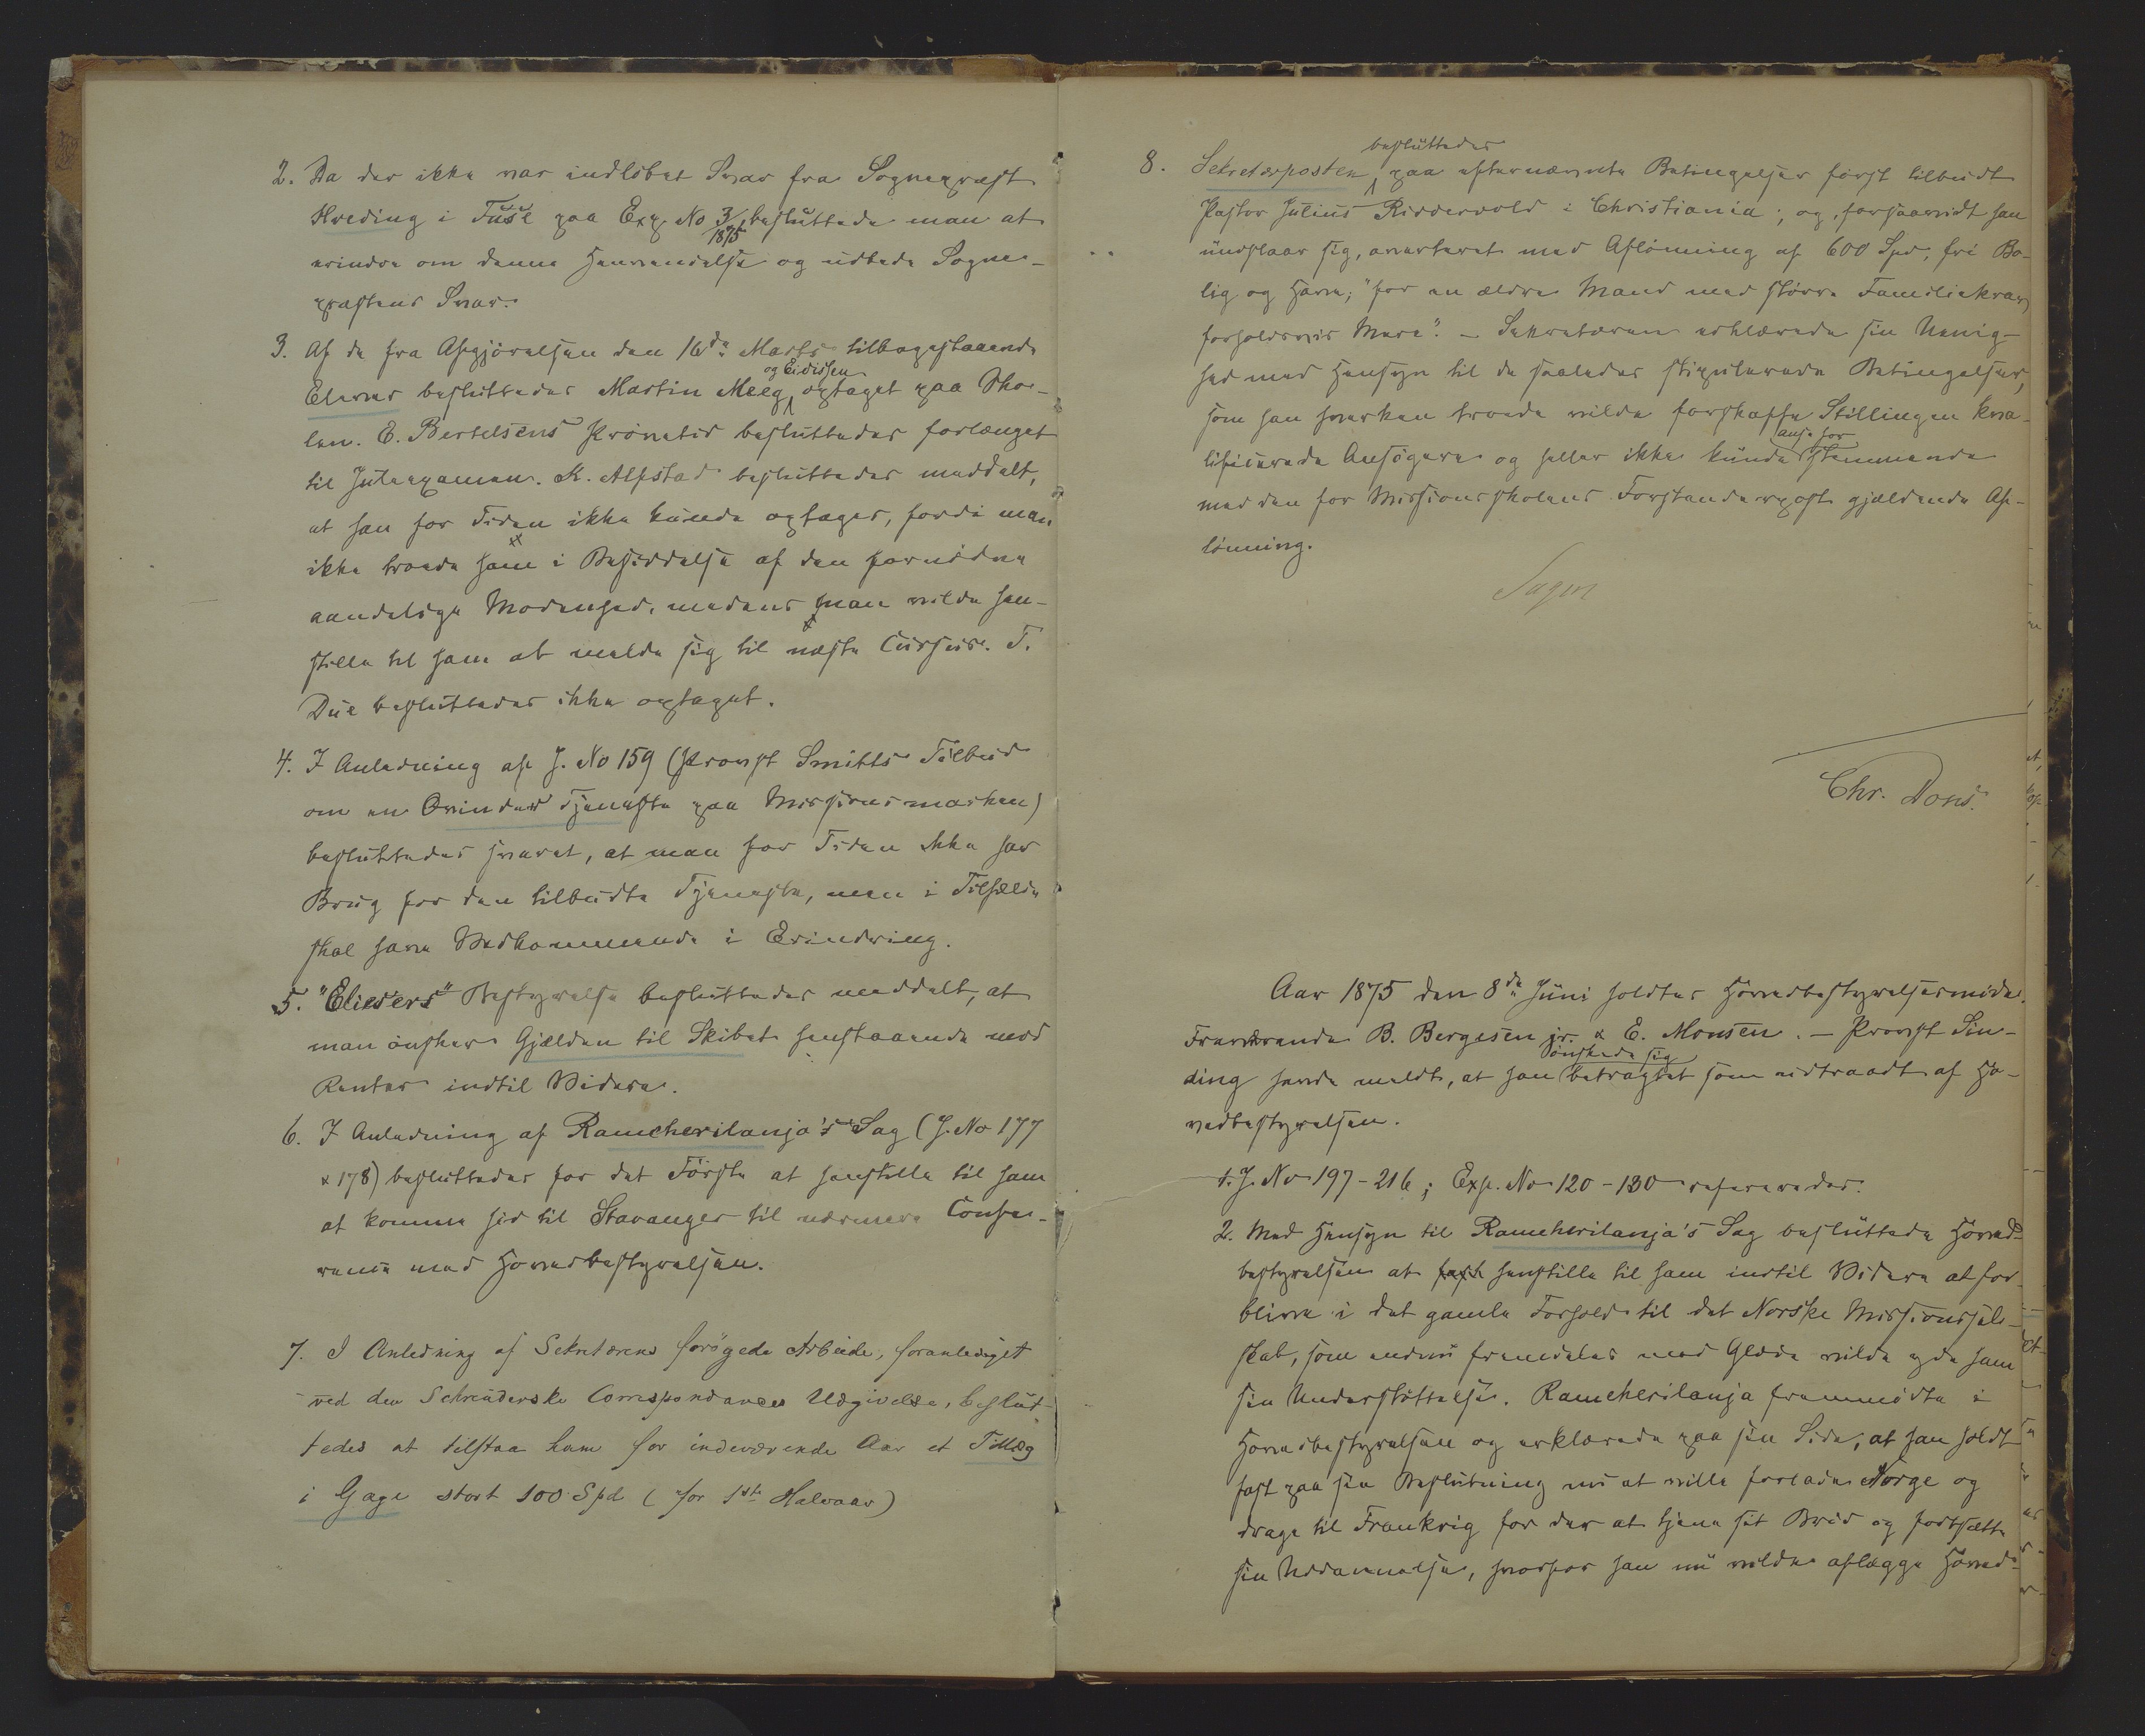 2. Da der ikke var indløbet Svar fra Sognepræst
Hveding i Fuse paa Exp. No 3/1875, besluttede man at
erindre om denne Henvendelse og udbede Sogne-
præstens Svar.
3. Af de fra Afgjørelsen den 16de Marts tilbagestaaende
og Eidissen
Elever besluttedes Martin Meeg, optaget paa Sko-
len. E. Bertelsens Prøvetid besluttedes forlænget
til Juleexamen. K. Alfstad besluttedes meddelt,
at han for Tiden ikke kunde optages, fordi man
ikke troede ham i Besiddelse af den fornødne
aandelige Modenhed, medens man vilde hen-
stille til ham at melde sig til næste Cursus. T.
Due besluttedes ikke optaget.
4. I Anledning af J. No 159 (Provst Smitts Tilbud
om en Qvindes Tjeneste paa Missionsmarken)
besluttedes svaret, at man for Tiden ikke har
Brug for den tilbudte Tjeneste, men i Tilfælde
skal have Vedkommende i Erindring.
5. "Eliesers" Bestyrelse besluttedes meddelt, at
man ønsker Gjælden til Skibet henstaaende mod
Renter indtil Videre.
6. I Anledning af Rameherilanja's Sag (J. No 177
& 178) besluttedes for det Første at henstille til ham
at komme hid til Stavanger til nærmere Confe-
rence med Hovedbestyrelsen.
7. I Anledning af Sekretærens forøgede Arbeide, foranlediget
ved den Schreuderske Correspondances Udgivelse, beslut-
tedes at tilstaa ham for indeværende Aar et Tillæg
i Gage stort 100 Spd (for 1ste Halvaar)
besluttedes
8. Sekretærposten, paa efternævnte Betingelser først tilbudt
Pastor Julius Riddervold i Christiania; og, forsaavidt han
undslaar sig, averteret med Aflønning af 600 Spd, fri Bo-
lig og Have; "for en ældre Mand med større Familiekrav
forholdsvis Mere". – Sekretæren erklærede sin Uenig-
hed med Hensyn til de saaledes stipulerede Betingelser,
som han hverken troede vilde forskaffe Stillingen kva-
anse for
lificerede Ansøgere og heller ikke kunde stemmende
med den for Missionsskolens Forstanderpost gjældende Af-
lønning.
Chr. Dons.
Aar 1875 den 8de Juni holdtes Hovedbestyrelsesmøde.
Fraværende B. Bergesen jr. & E. Monsen. – Provst Sin-
ønskede sig
ding havde meldt, at han betragtet som udtraadt af Ho-
vedbestyrelsen.
1. J. No 197-216; Exp. No 120-130 refereredes.
2. Med Hensyn til Rameherilanja's Sag besluttede Hoved-
bestyrelsen at henstille til ham indtil Videre at for-
blive i det gamle Forhold til det Norske Missionssel-
skab, som endnu fremdeles med Glæde vilde yde ham
sin Understøttelse. Rameherilanja fremmødte i
Hovedbestyrelsen og erklærede paa sin Side, at han holdt
fast paa sin Beslutning nu at ville forlade Norge og
drage til Frankrig for der at tjene sit Brød og fortsætte
sin Uddannelse, hvorfor han nu vilde aflægge Hoved-